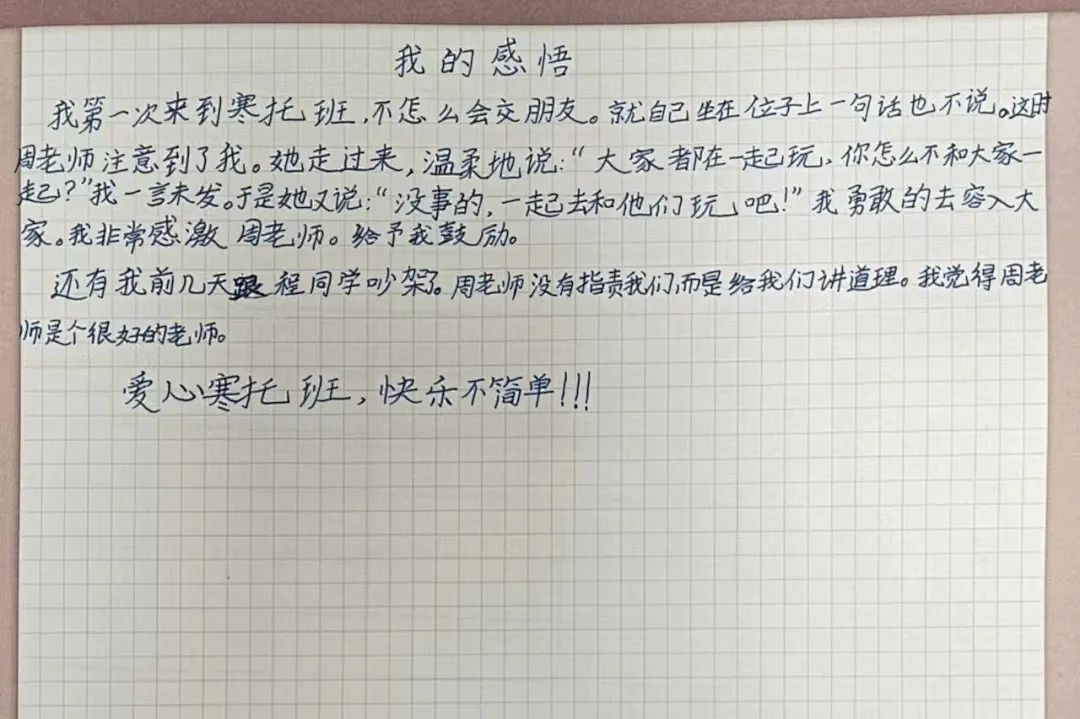 我的感悟
我第一次来到寒托班,不怎么会交朋友。就自己坐在位子上一句话也不说。这时
周老师注意到了我。她走过来,温柔地说:“大家都在一起玩,你怎么不和大家一
起?”我一言未发。于是她又说:“没事的,一起去和他们玩吧!”我勇敢的去容入大
家。我非常感激周老师。给予我鼓励。
还有我前几天跟程同学吵架了。周老师没有指责我们,而是给我们讲道理。我觉得周老
师是个很好的老师。
爱心寒托班,快乐不简单!!!